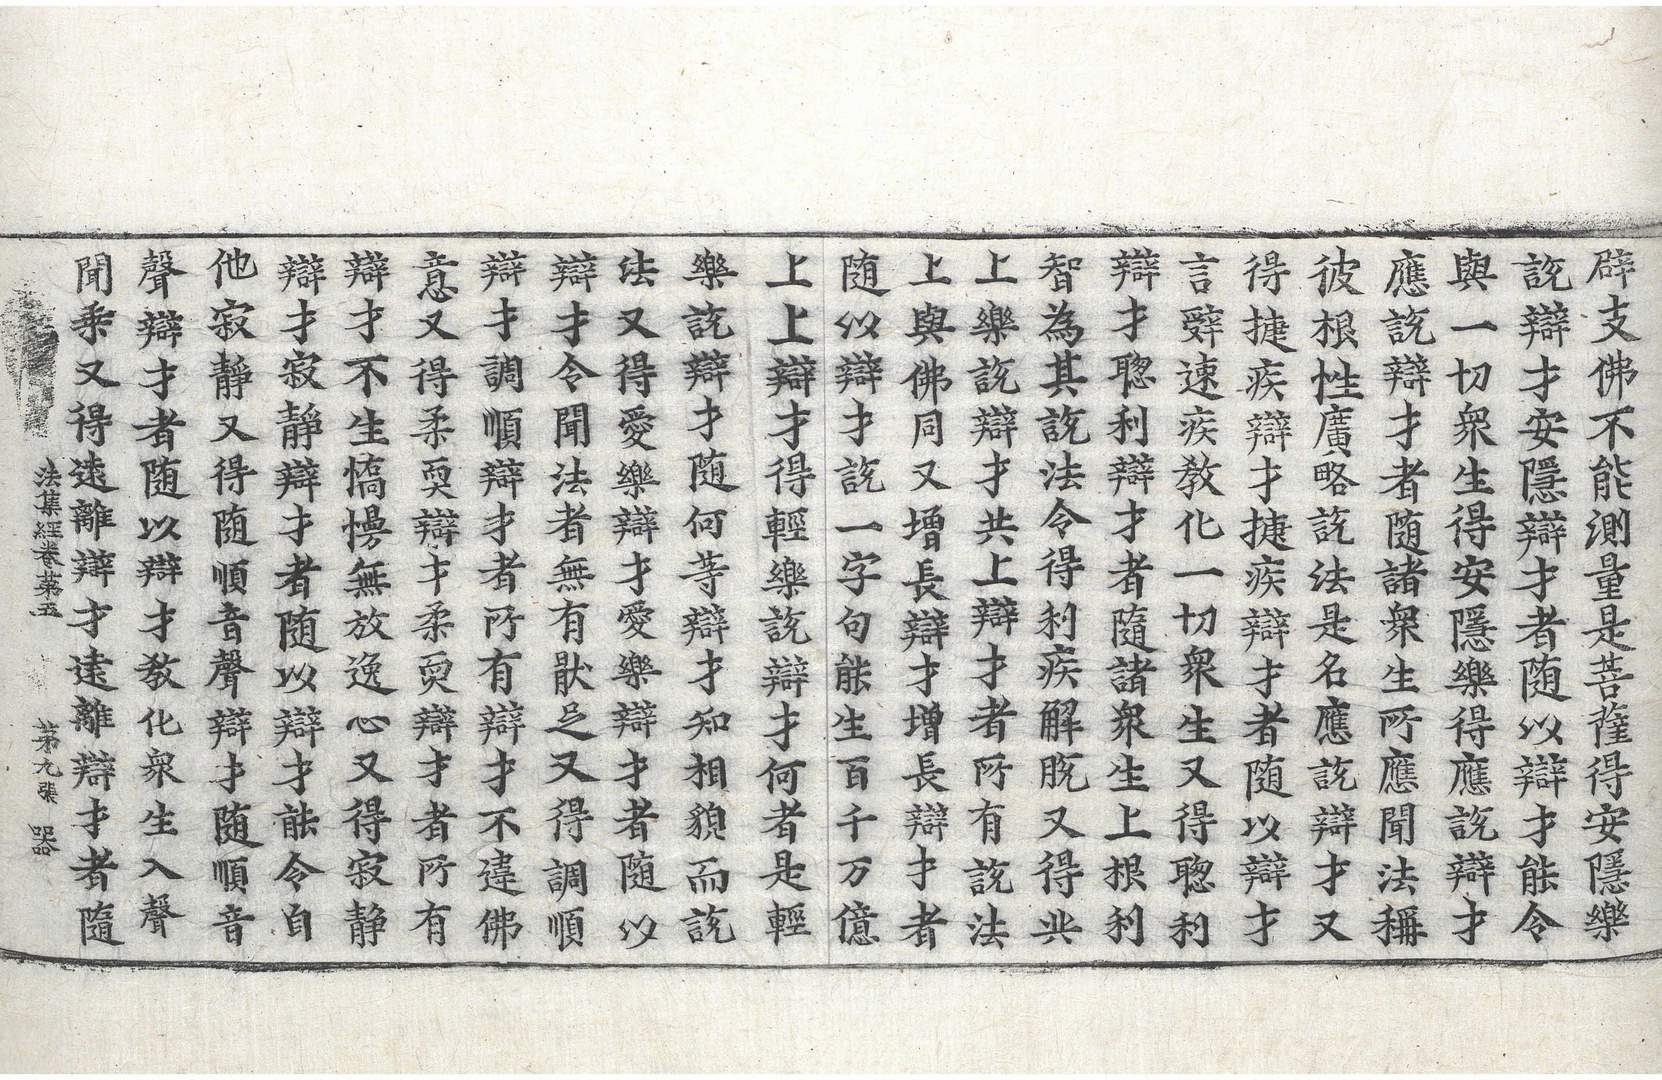 辟支佛不能測量是菩薩得安隱樂
說辯才安隱辯才者随以辯才能令
與一切衆生得安隱樂得應說辯才
應說辯才者随諸衆生所應聞法稱
彼根性廣略說法是名應說辯才又
得捷疾辯才捷疾辯才者随以辯才
言辭速疾教化一切衆生又得聰利
辯才聰利辯才者隨諸衆生上根利
智為其說法令得利疾解脫又得共
上樂說辯才共上辯才者所有說法
上與佛同又增長辯才增長辯才者
随以辯才說一字句能生百千万億
上上辯才得輕樂說辯才何者是輕
樂說辯才随何等辯才知相貌而說
法又得愛樂辯才愛樂辯才者随以
辯才令聞法者無有猒足又得調順
辯才調順辯才者所有辯才不違佛
意又得柔耎辯才柔耎辯才者所有
辯才不生憍慢無放逸心又得寂静
辯才寂静辯才者随以辯才能令自
他寂靜又得随順音聲辯才随順音
聲辯才者随以辯才教化衆生入聲
聞乘又得遠離辯才遠離辯才者隨
法集經卷苐五 苐九張 器